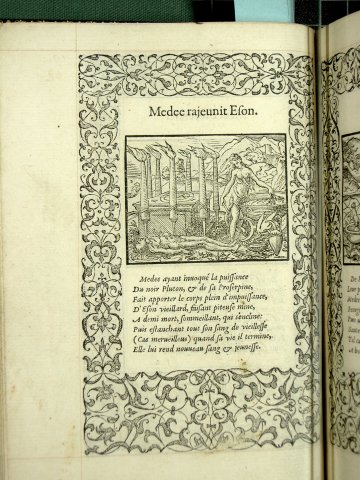 Medee rajeunit Eson.
Medee ayant inuoqué la puissance
Du noir Pluton, & de sa Proserpine,
Fait apporter le corps plein d'impuissance,
D'Eson vieillard, faisant piteuse mine,
A demi mort, sommeillant, qui s'encline:
Puis estanchant tout son sang de vieillesse
(Cas merueilleus) quand sa vie il termine,
Elle lui rend nouueau sang & jeunesse.